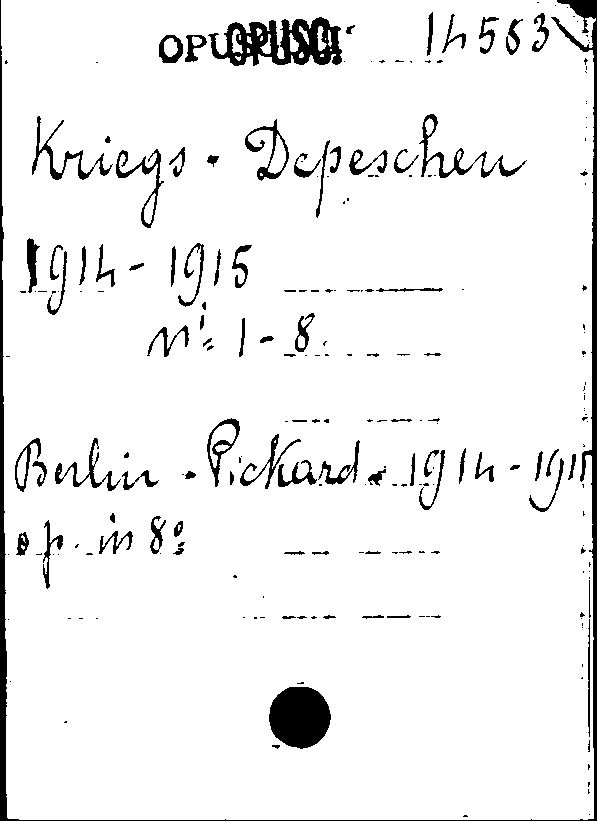 OPUSC. 14563
Kriegs - Depeschen
1914 - 1915
ni: 1 - 8.
Berlin - Pickard - 1914 - 191
8 p. in 8°